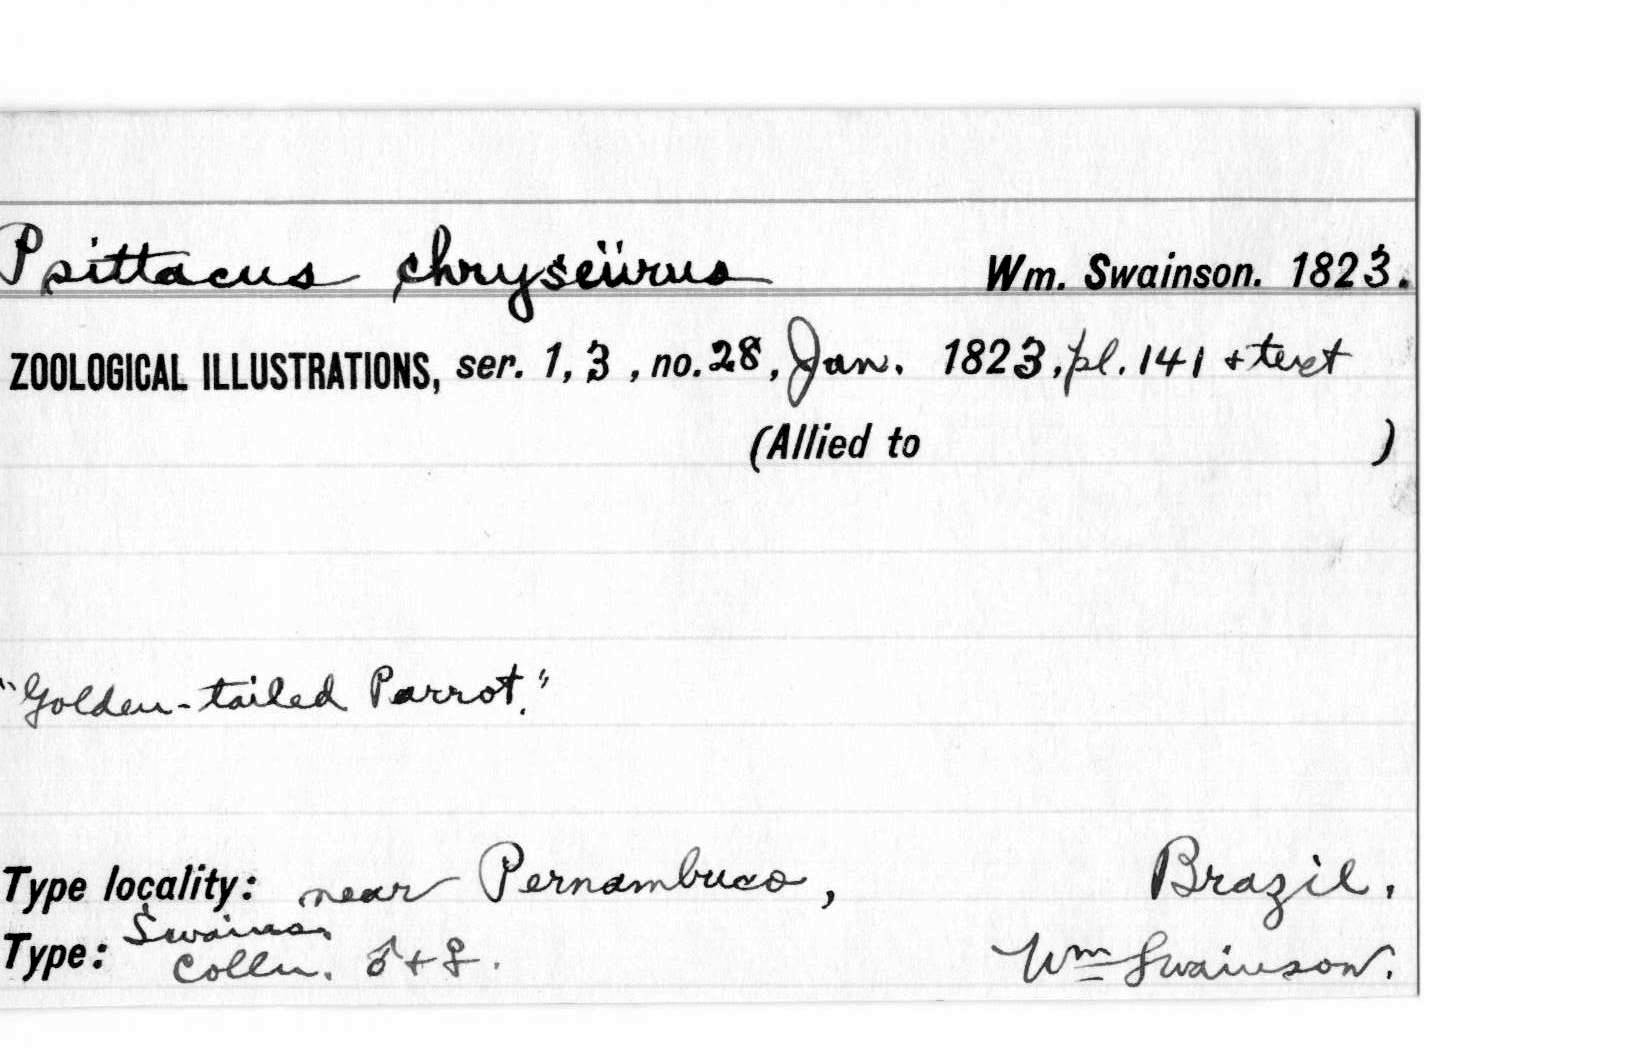 Psittacus chryseürus Wm. Swainson. 1823.
ZOOLOGICAL ILLUSTRATIONS, ser. 1, 3, no. 28, Jan. 1823, pl. 141 + text
(Allied to )
"Golden-tailed Parrot."
Type locality: near Pernambuco, Brazil.
Swainson
Type: Colln. ♂ + ♀. Wm Swainson.